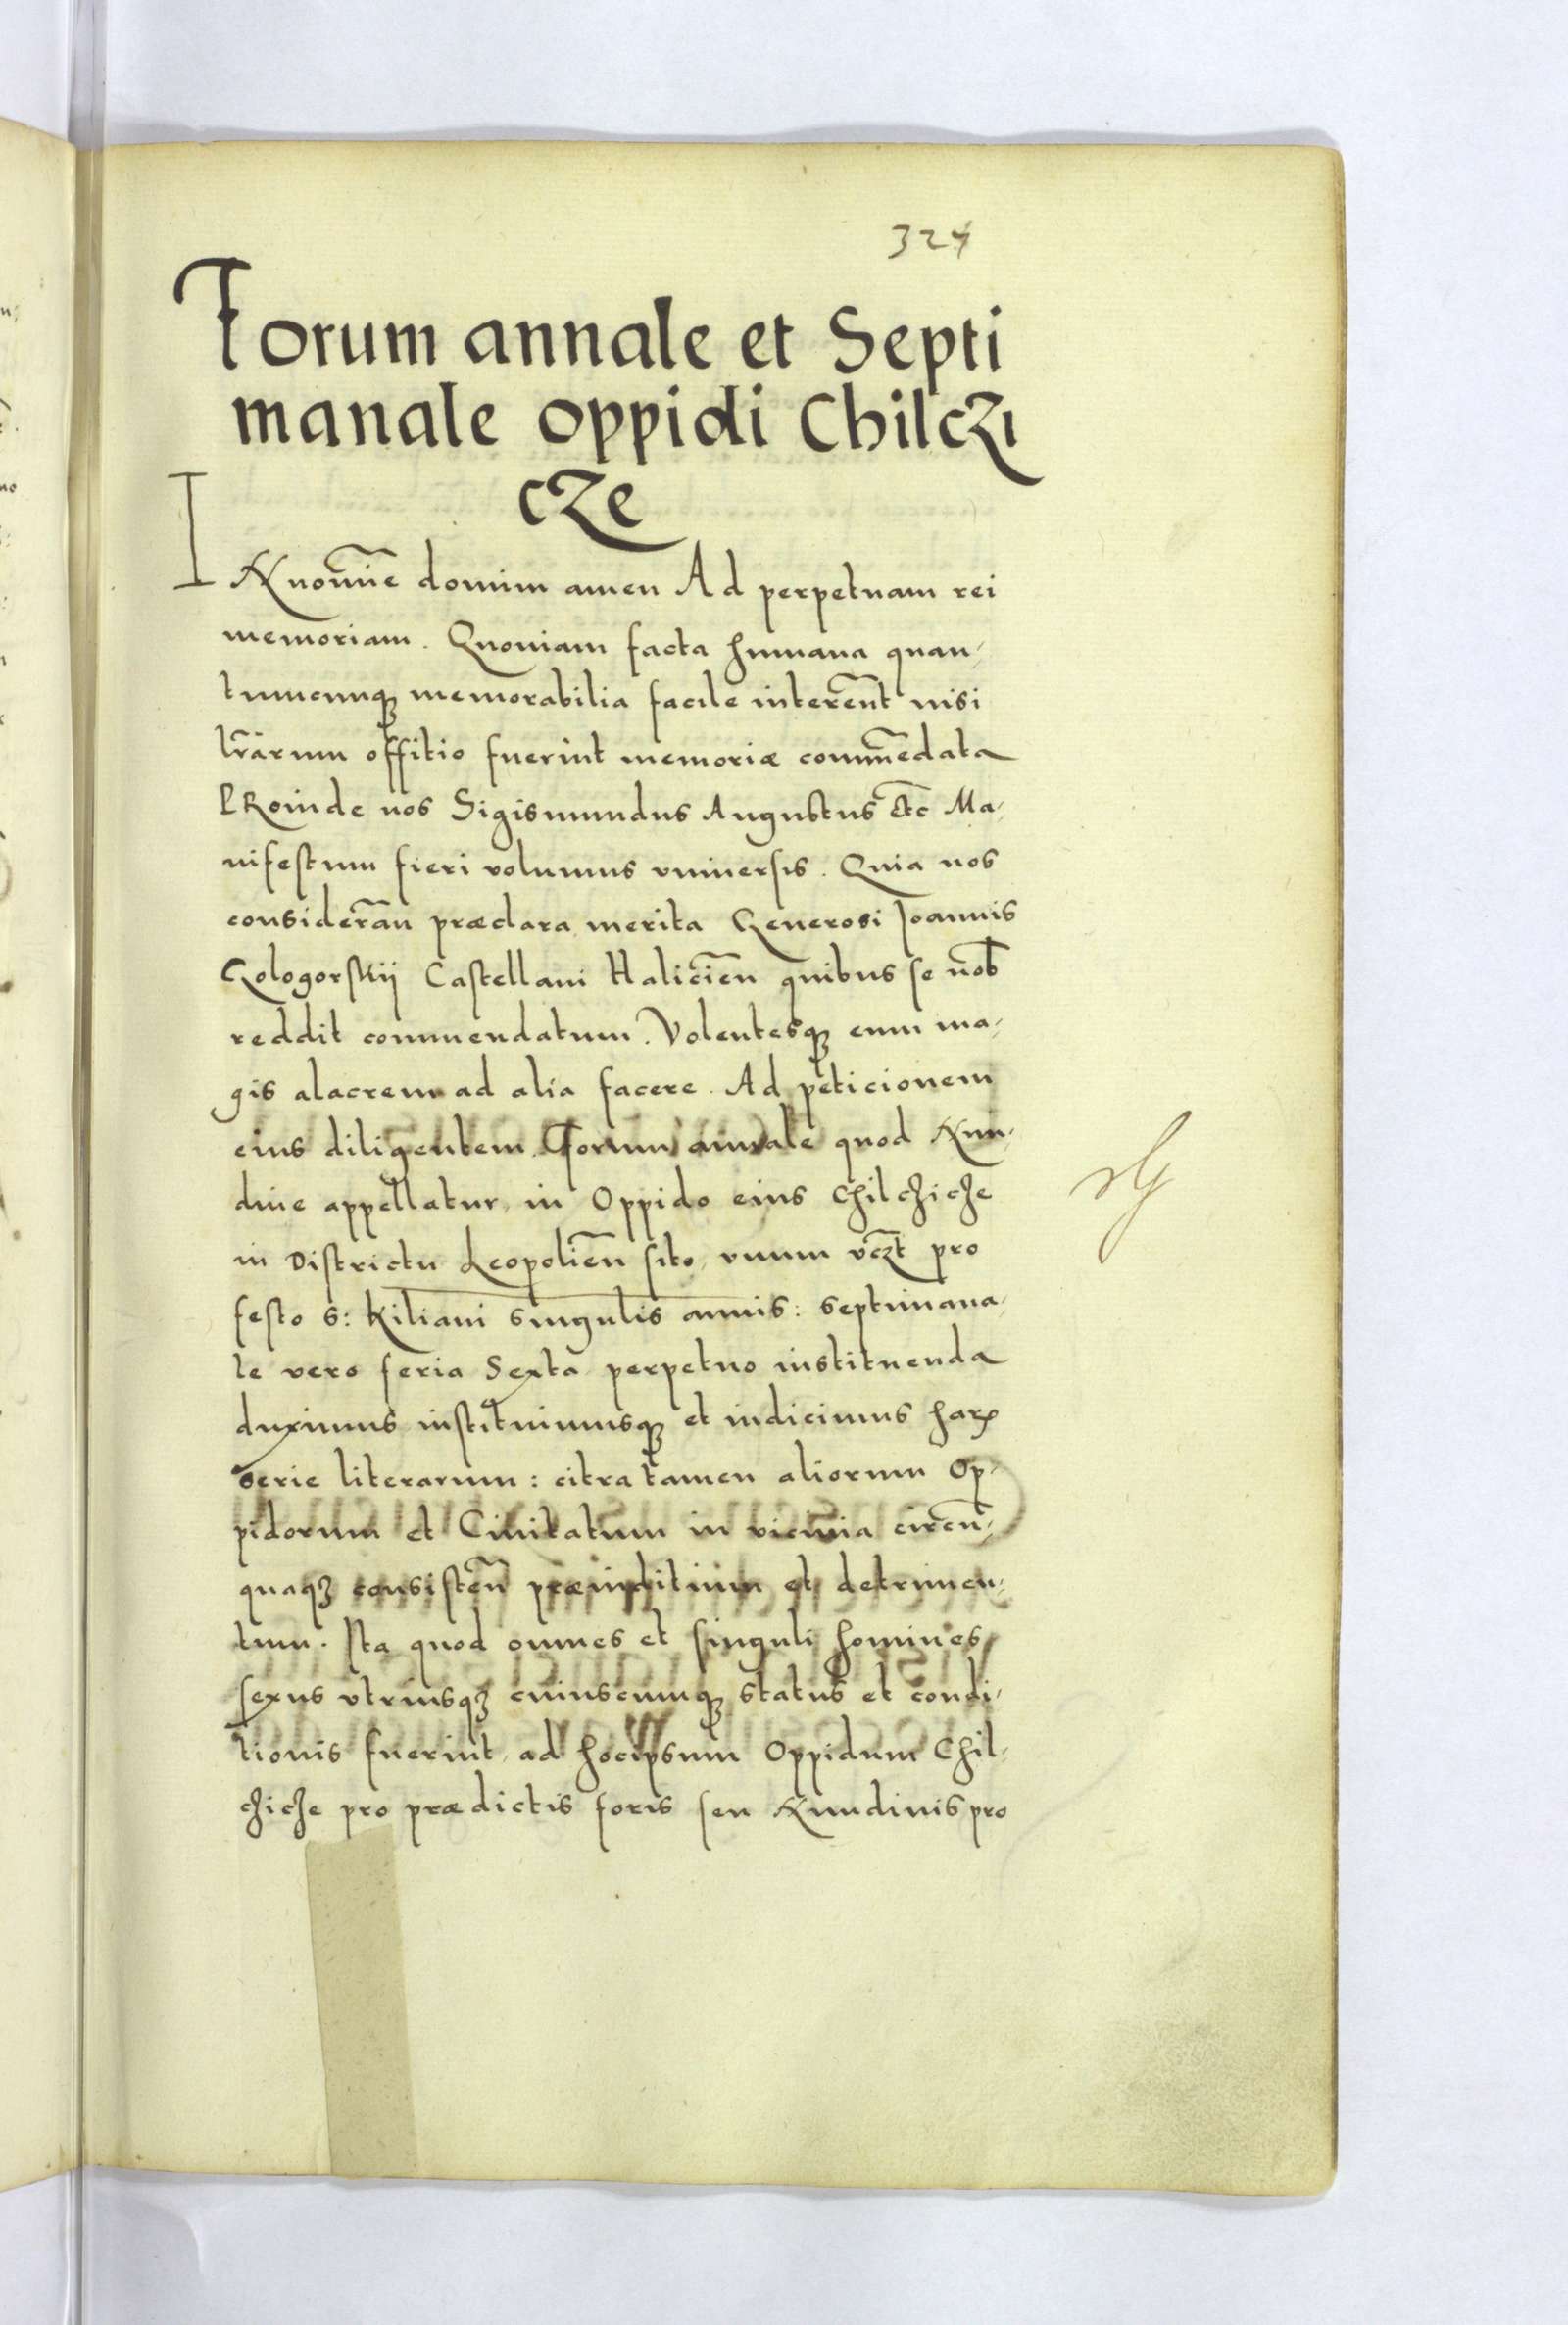 324
Forum annale et Septi
manale oppidi Chilczi
cze
IN no͞mie domini amen Ad perpetuam rei
memoriam. Quoniam facta humana quan-
tumcunqꝫ memorabilia facile intere͞nt nisi
lr̃arum offitio fuerint memoriæ comm͞edata
PRoinde nos Sigismundus Augustus et͞c Ma-
nifestum fieri volumus vniuersis. Quia nos
consider͞an præclara merita Generosi Joannis
Gologorskij Castellani Halici͞en quibus se nob̄
reddit commendatum. Volentesqꝫ eum ma-
gis alacrem ad alia facere. Ad peticionem
eius diligentem. Forum annale quod Nun-
dine appellatur, in Oppido eius Chilczicze
in Districtu Leopoli͞en sito, vnum vcꝫt pro
festo S: Kiliani singulis annis: septimana-
le vero feria Sexta perpetuo instituenda
duximus instituimusqꝫ et indicimus harꝝ
serie literarum: citra tamen aliorum Op-
pidorum et Ciuitatum in vicinia circu͞n-
quaqꝫ consist͞en præiuditium et detrimen-
tum. Ita quod omnes et singuli homines
sexus vtriusqꝫ cuiuscunqꝫ status et condi-
tionis fuerint, ad hocipsum Oppidum Chil-
czicze pro prædictis foris seu Nundinis pro